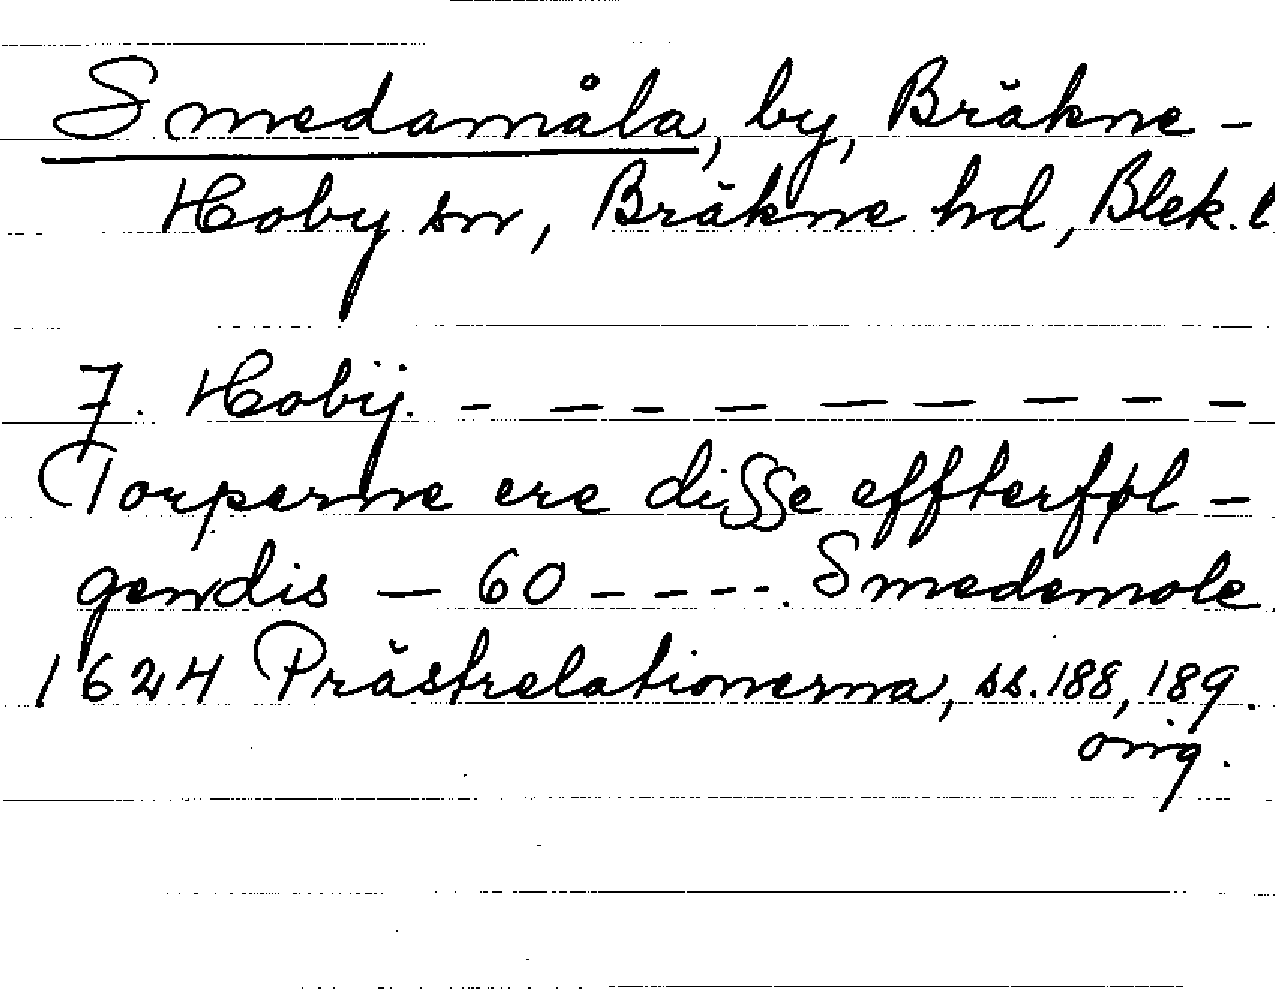 Smedamåla, by, Bräkne-
Hoby sn, Bräkne hd, Blek. l
7. Hobÿ. - - - - - - - - -
Torperne ere disse effterføl-
gendis - 60 - - - - . Smedemole
1624 Prästrelationerna, ss. 188, 189.
orig.